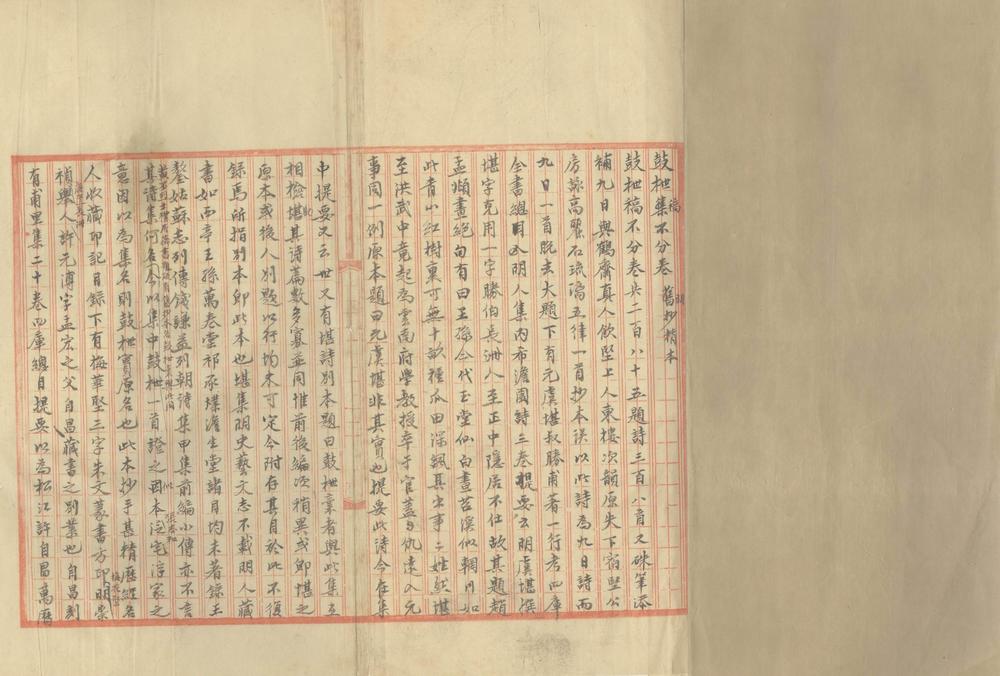 鼓枻稿不分卷 明舊抄精本
鼓枻稿不分卷共二百八十五題詩三百八首又硃筆添
補九日與鶴齋真人飲堅上人東樓次韻原失下宿堅公
房詠高麗石琉璃五律一首抄本誤以此詩為九日詩而
九日一首既去大題下有元虞堪叔勝甫著一行考四庫
全書總目明人集內希澹園詩三卷提要云明虞堪撰
堪字克用一字勝伯長洲人至正中隱居不仕故其題趙
孟頫畫絕句有曰王孫今代玉堂仙自畫苕溪似輞川如
此青山紅樹裏可無十畝種瓜田深諷其出事二姓然堪
至洪武中竟起為雲南府學教授卒于官蓋與仇遠入元
事同一例原本題曰元虞堪非其實也提要此詩今在集
中提要又云世又有堪詩別本題曰鼓枻稾者與此集互
相檢勘其詩篇數多寡並同惟前後編次稍異或卽堪之
原本或後人別題以行均未可定今附存其目於此不復
錄焉所指別本卽此本也堪集明史藝文志不載明人藏
書如西亭王孫萬卷堂祁承㸁澹生堂諸目均未著錄王
鏊姑蘇志列傳錢謙益列朝詩集甲集前編小傳亦不言
其詩集何名今以集中鼓枻一首證之因本泛宅浮家之
意因以為集名則鼓枻實原名也此本抄手甚精歷經名
人收藏印記目錄下有梅華堅三字朱文篆書方印明崇
禎舉人許元溥字孟宏之父自昌藏書之別業也自昌刻
有甫里集二十卷四庫總目提要以為松江許自昌萬曆